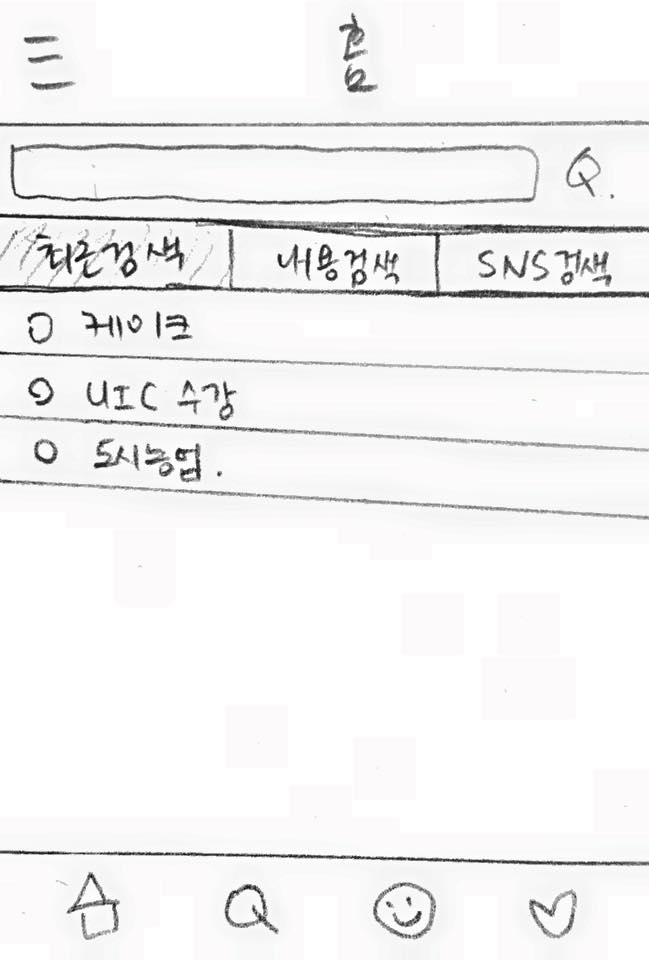 홈
최근검색
내용검색
SNS검색
케이크
UIC 수강
도시농업.